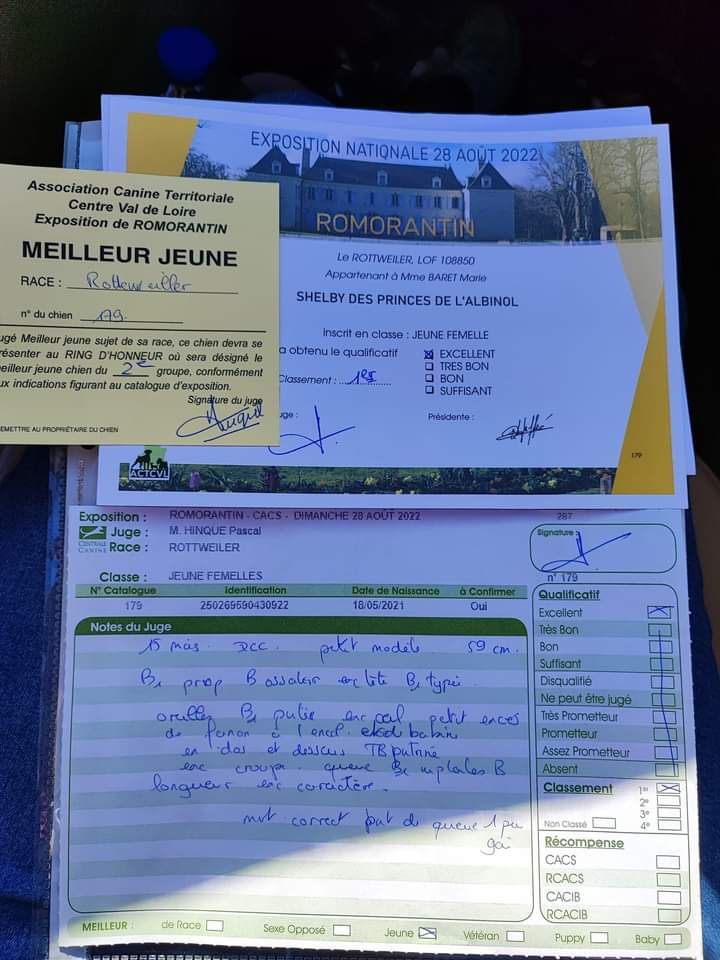 EXPOSITION NATIONALE 28 AOÛT 2022
ROMORANTIN
Le ROTTWEILER, LOF 108850
Appartenant à Mme BARET Marie
SHELBY DES PRINCES DE L'ALBINOL
Inscrit en classe : JEUNE FEMELLE
a obtenu le qualificatif
EXCELLENT
TRES BON
BON
SUFFISANT
Classement : 1er
uge :
Présidente :
179
ACTCVL
Association Canine Territoriale
Centre Val de Loire
Exposition de ROMORANTIN
MEILLEUR JEUNE
RACE : Rottweiller
n° du chien 179
ugé Meilleur jeune sujet de sa race, ce chien devra se
ésenter au RING D'HONNEUR où sera désigné le
eilleur jeune chien du 2e groupe, conformément
ux indications figurant au catalogue d'exposition.
Signature du juge
EMETTRE AU PROPRIÉTAIRE DU CHIEN
Exposition : ROMORANTIN - CACS - DIMANCHE 28 AOÛT 2022 287
CENTRALE CANINE
Juge : M. HINQUE Pascal
Race : ROTTWEILER
Signature :
n° 179
Classe : JEUNE FEMELLES
N° Catalogue Identification Date de Naissance à Confirmer
179 250269590430922 18/05/2021 Oui
Notes du Juge
15 mois petit modèle 59 cm.
Bne prop B ossature exc tête Bne typée
oreilles Bne petit
de fanon à l'encol.
en dos et dessus TB
exc croupe queue Bne B
longueur exc caractère.
mvt correct port de queue 1 peu
gai
Qualificatif
Excellent
Très Bon
Bon
Suffisant
Disqualifié
Ne peut être jugé
Très Prometteur
Prometteur
Assez Prometteur
Absent
Classement 1er
2e
3e
Non Classé 4e
Récompense
CACS
RCACS
CACIB
RCACIB
MEILLEUR : de Race Sexe Opposé Jeune Vétéran Puppy Baby